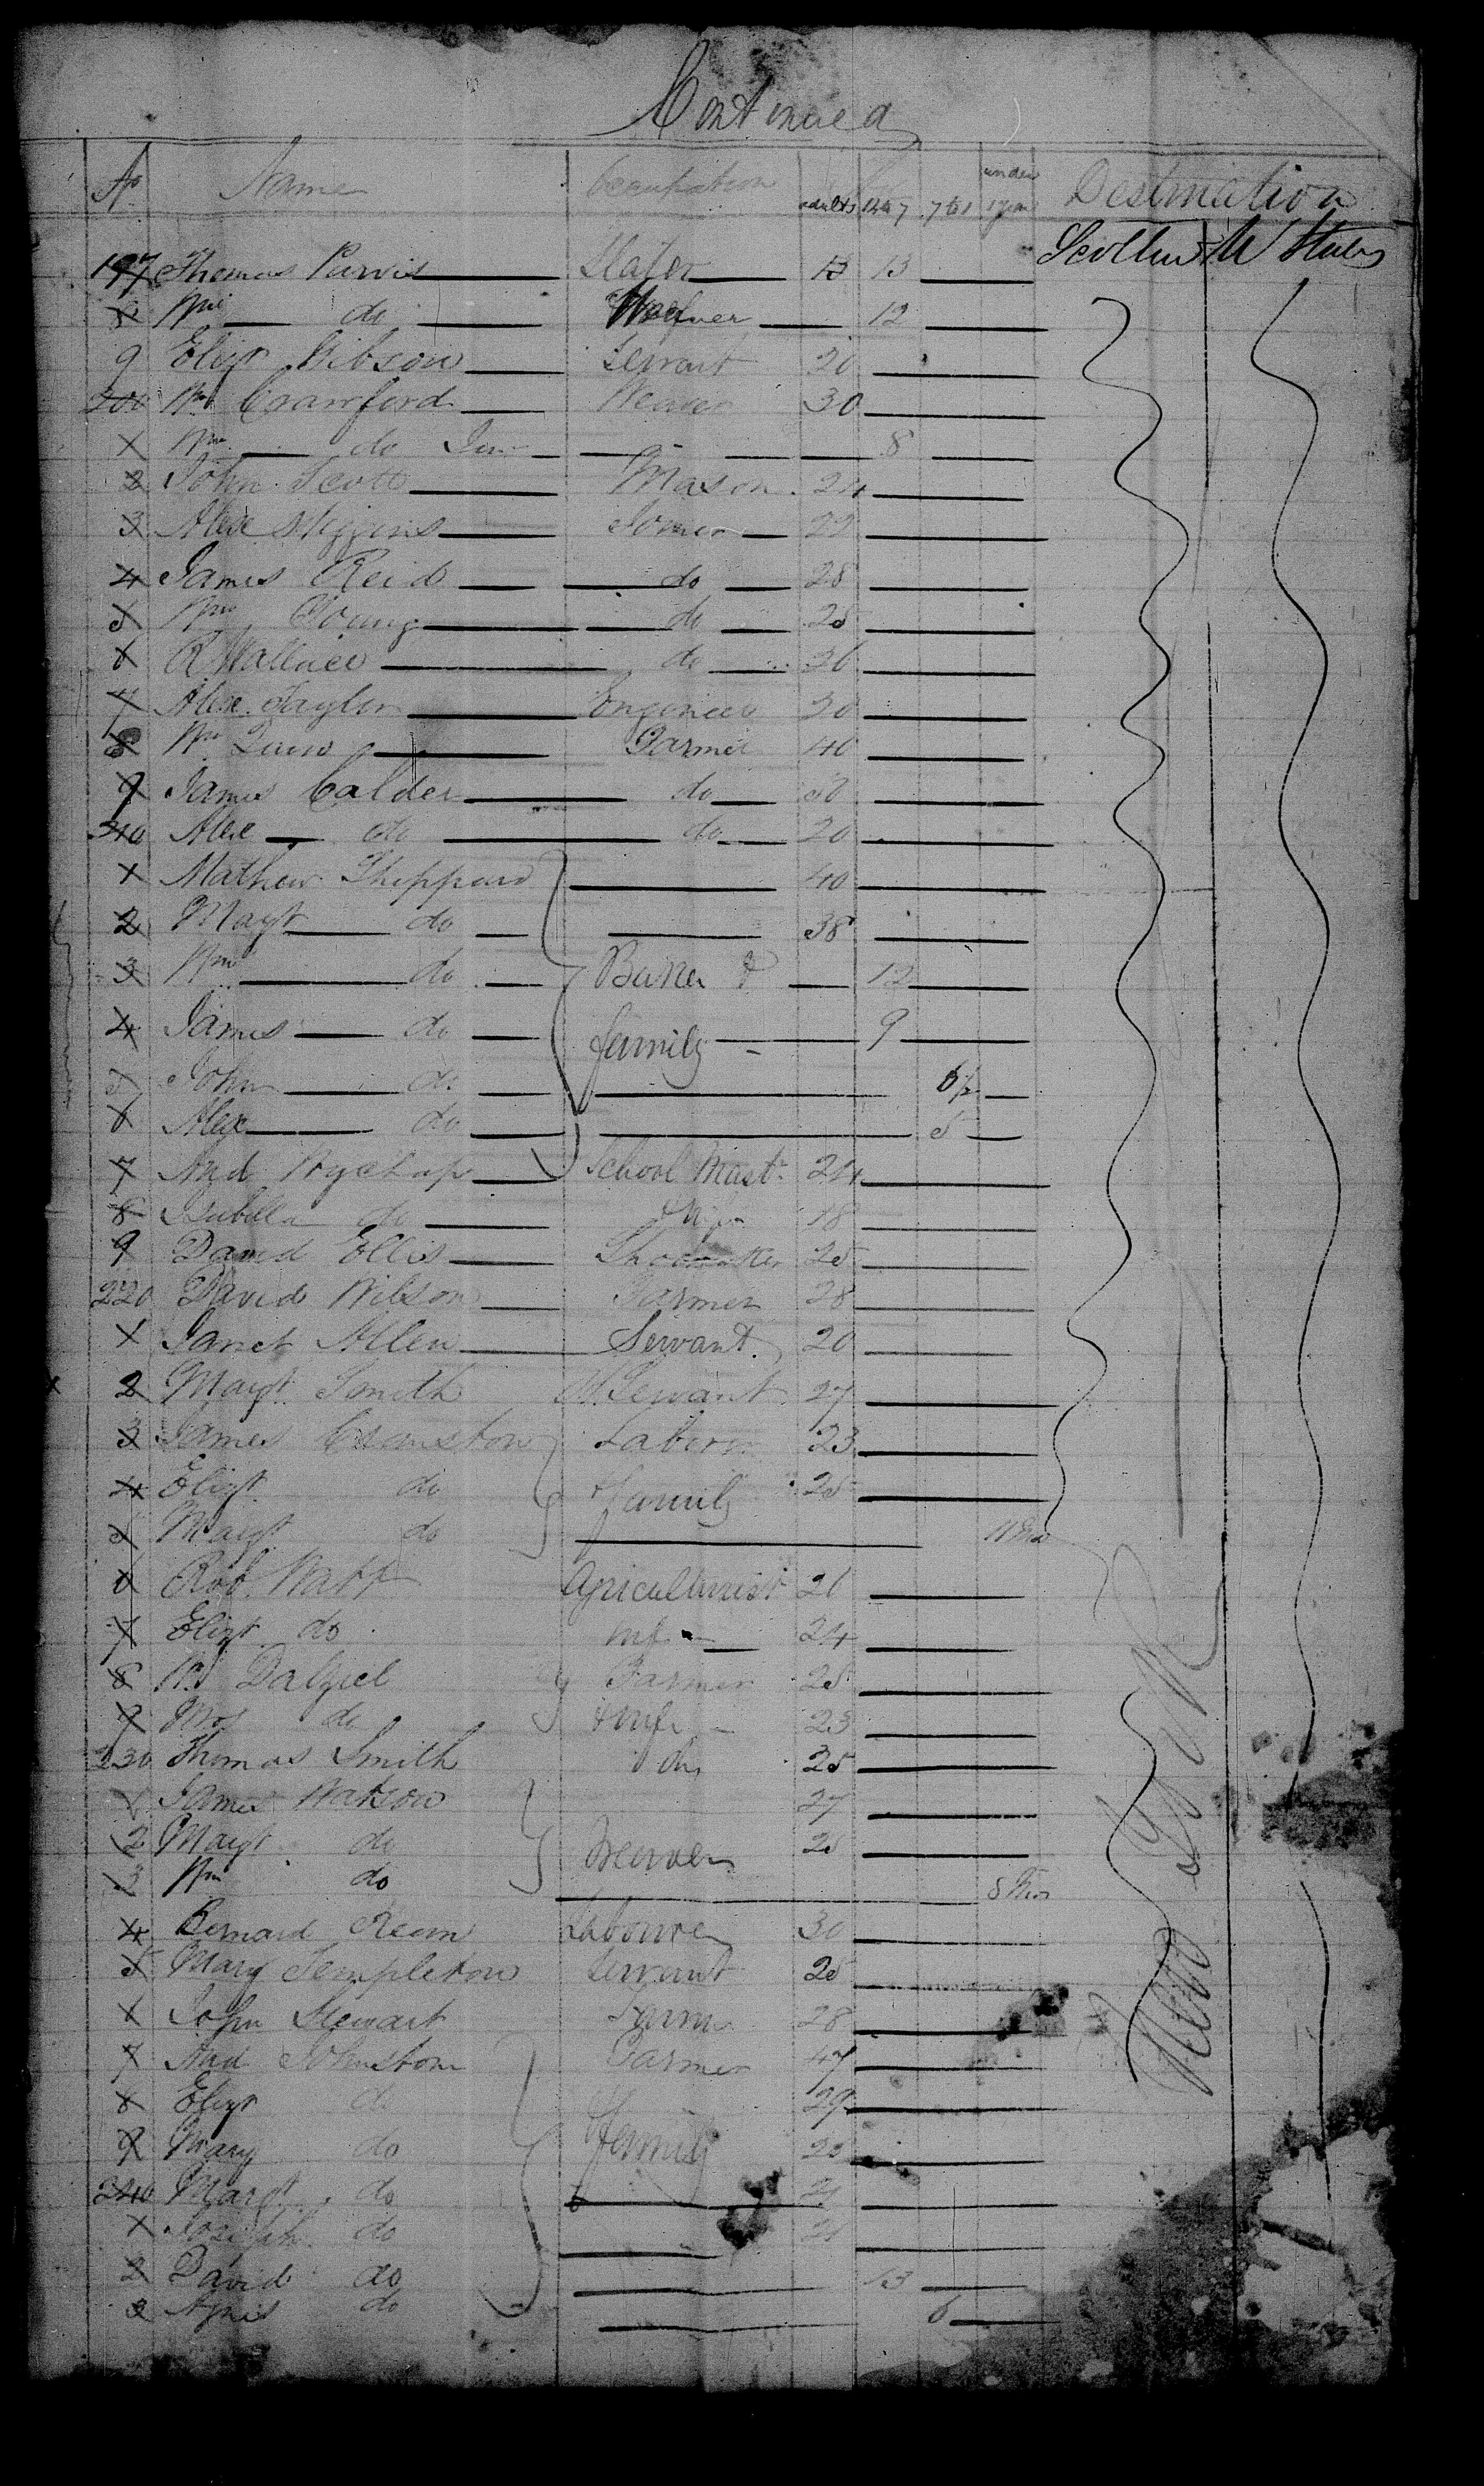 Continued
No Name Occupation adults 14 to 7 7 to 1 under 1 year Destination
197 Thomas Purvis Slater 13 13 Scotland U States
8 Wm do 12
9 Elizt Gibson Servant 20
200 Wm Crawford Weaver 30
1 Wm do Jun 8
2 John Scott Mason 24
3 Alex Joiner 22
4 James Reid do 28
5 Wm Young do 25
6 R Wallace do 36
7 Alex Taylor Engineer 30
8 Wm Farmer 40
9 James Calder do
210 Alex do do 20
1 Mathew Sheppard 40
2 Magt do 38
3 Wm do Baker & 12
4 James do family 9
5 John do
6 Alex do 5
7 And School Mastr 24
8 Isabella do Wife 18
9 David Ellis Shoemaker 25
220 David Wilson Farmer 28
1 Janet Allen Servant 20
2 Magt Smith Servant 27
3 James Cranston Laborer 23
4 Elizt do family 25
5 Magt do 11 Mos
6 Rob. Watt Agriculturist 26
7 Elizt do 24
8 W. Dalziel Farmer 28
9 Mrs do & wife 23
230 Thomas Smith do 25
1 James Watson 27
2 Magt do Weaver 25
3 Wm do 8 Mos
4 Bernard Labourer 30
5 Mary Templeton Servant 25
6 John Stewart Farmer 28
7 And Johnston Farmer 47
8 Elizt do 29
9 Mary do family 25
240 Margt do
1 Joseph do 21
2 David do 13
3 Agnis do 6
New York